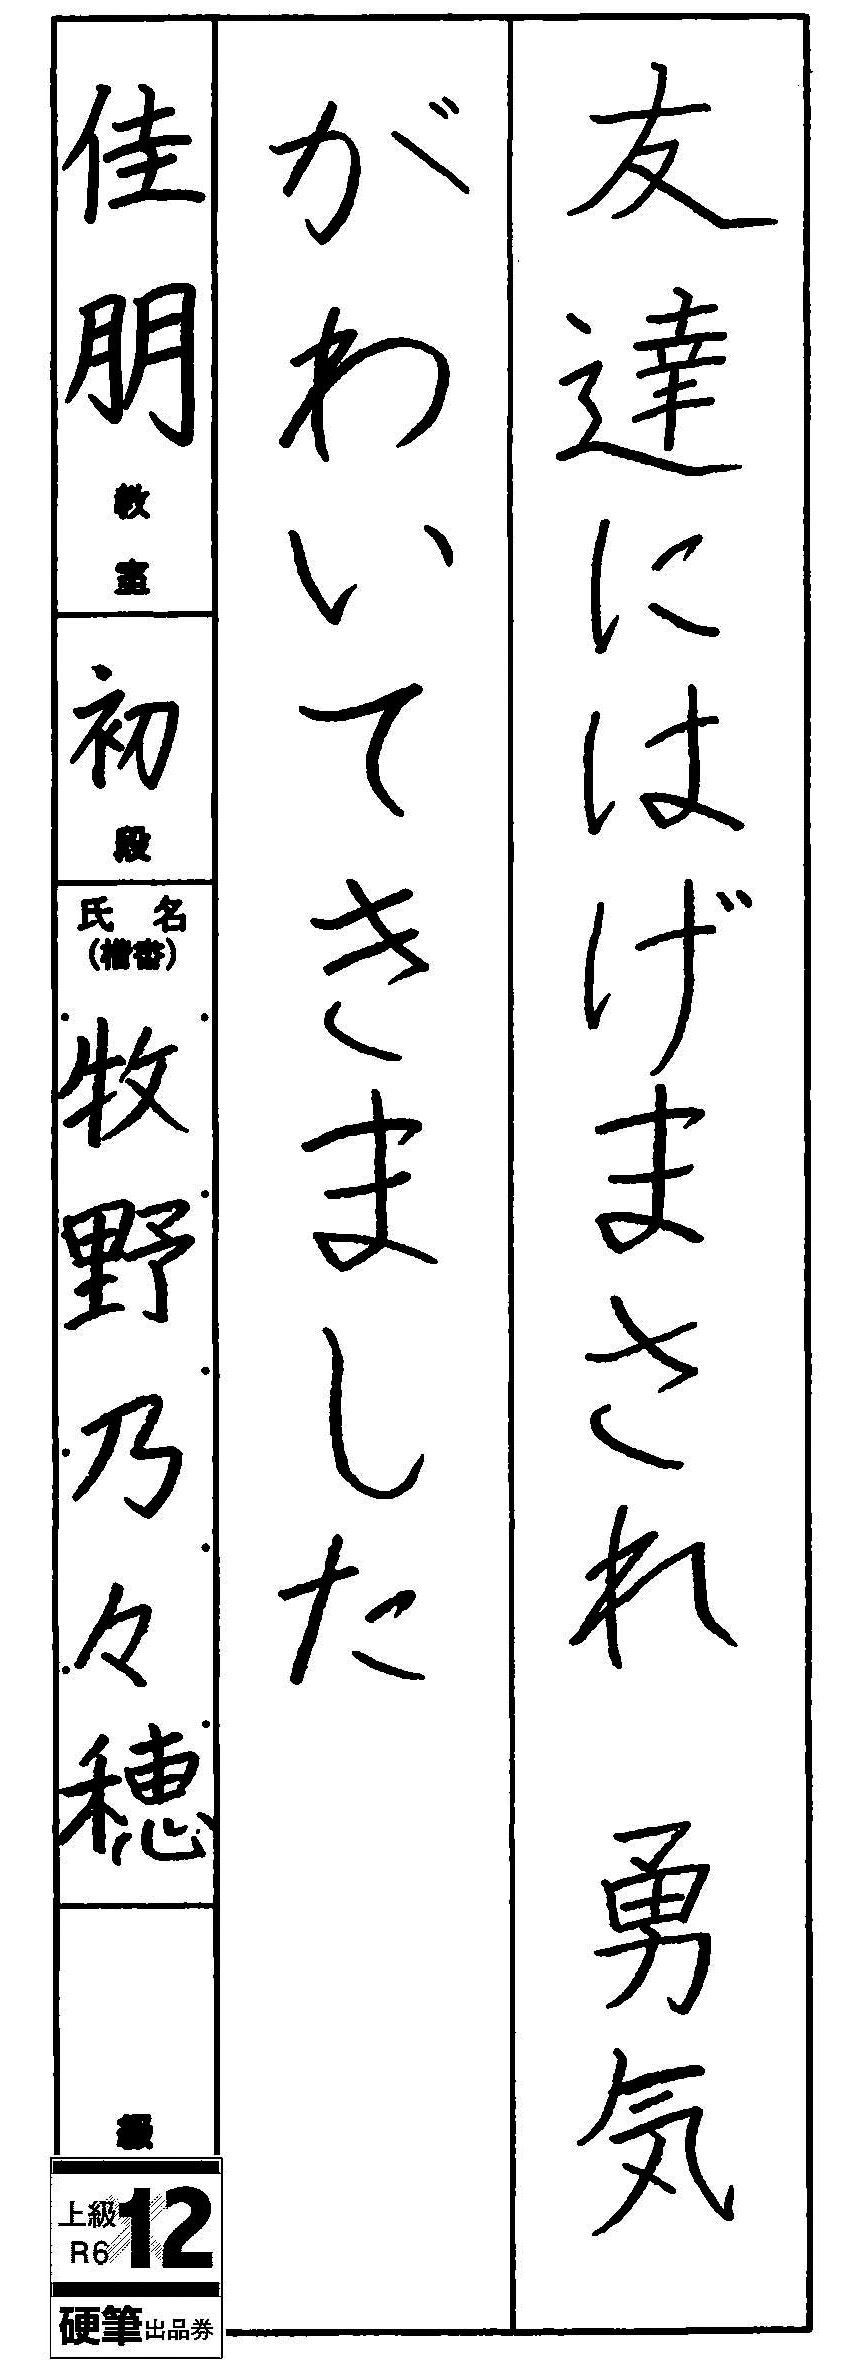 友達にはげまされ　勇気
がわいてきました
佳朋教室
初段
氏名
(楷書)
牧野乃々穂
級
上級
R6
12
硬筆出品券